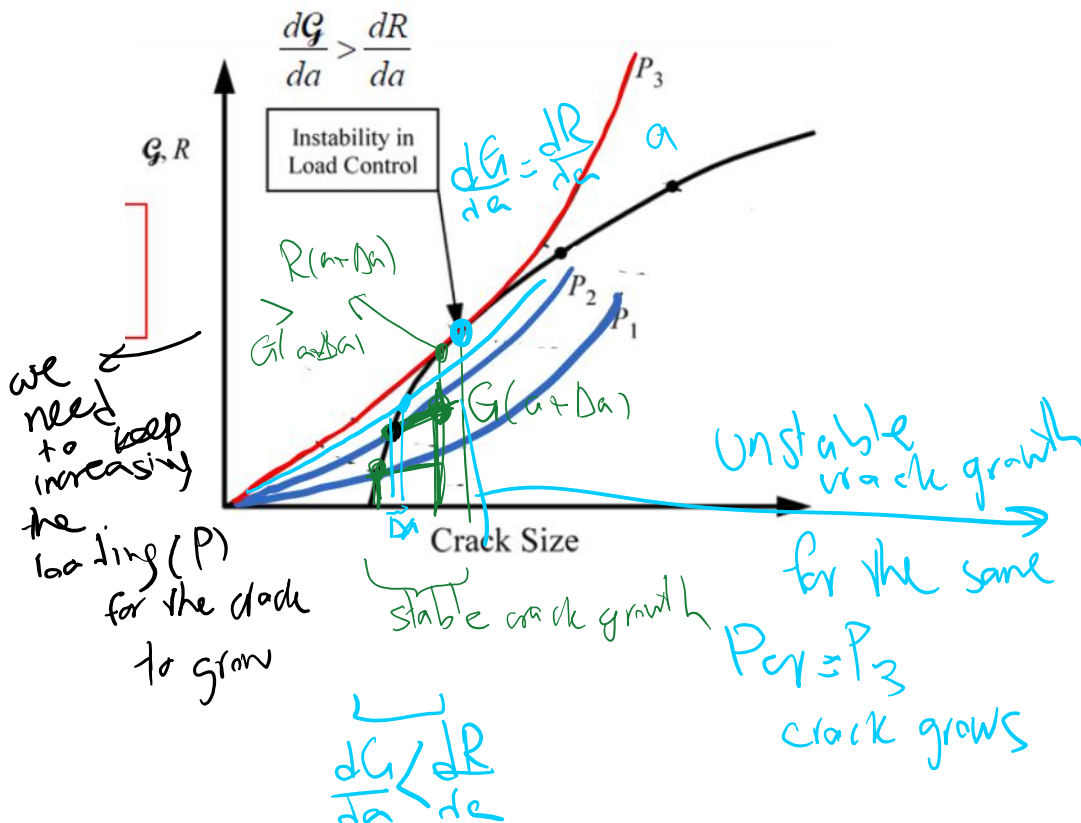 d𝒢/da > dR/da
Instability in
Load Control
𝒢, R
P₃
dG/da = dR/da
a
R(a+Da)
>
G(a+Da)
P₂
P₁
G(a+Da)
we
need
to keep
increasing
the
loading (P)
for the crack
to grow
Da
Crack Size
stable crack growth
Unstable
crack growth
for the same
Pcr = P₃
crack grows
dG/da < dR/da